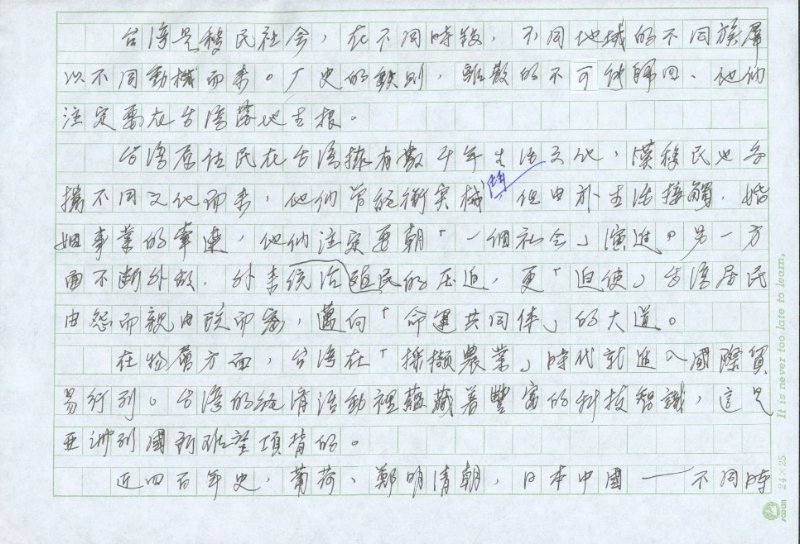 台灣是移民社會，在不同時段，不同地域的不同族羣
以不同動機而來。厂史的鉄則，離散的不可能歸回、他們
注定要在台灣落地生根。
台灣原住民在台灣擁有數千年生活文化，漢移民也各
攜不同文化而來，他們曾經衝突械鬥，但由於生活接觸，婚
姻事業的牽連，他們注定要朝「一個社會」演進。另一方
面不断外敌，外來統治殖民的压迫，更「迫使」台灣居民
由怨而親由疏而密，邁向「命運共同体」的大道。
在物質方面，台灣在「採擷農業」時代就進入國際貿
易行列。台灣的經濟活動裡蘊藏着豐富的科技智識，這是
亞洲列國所難望項背的。
近四百年史，葡荷、鄭明清朝，日本中國——不同時
It is never too late to learn.
24×25